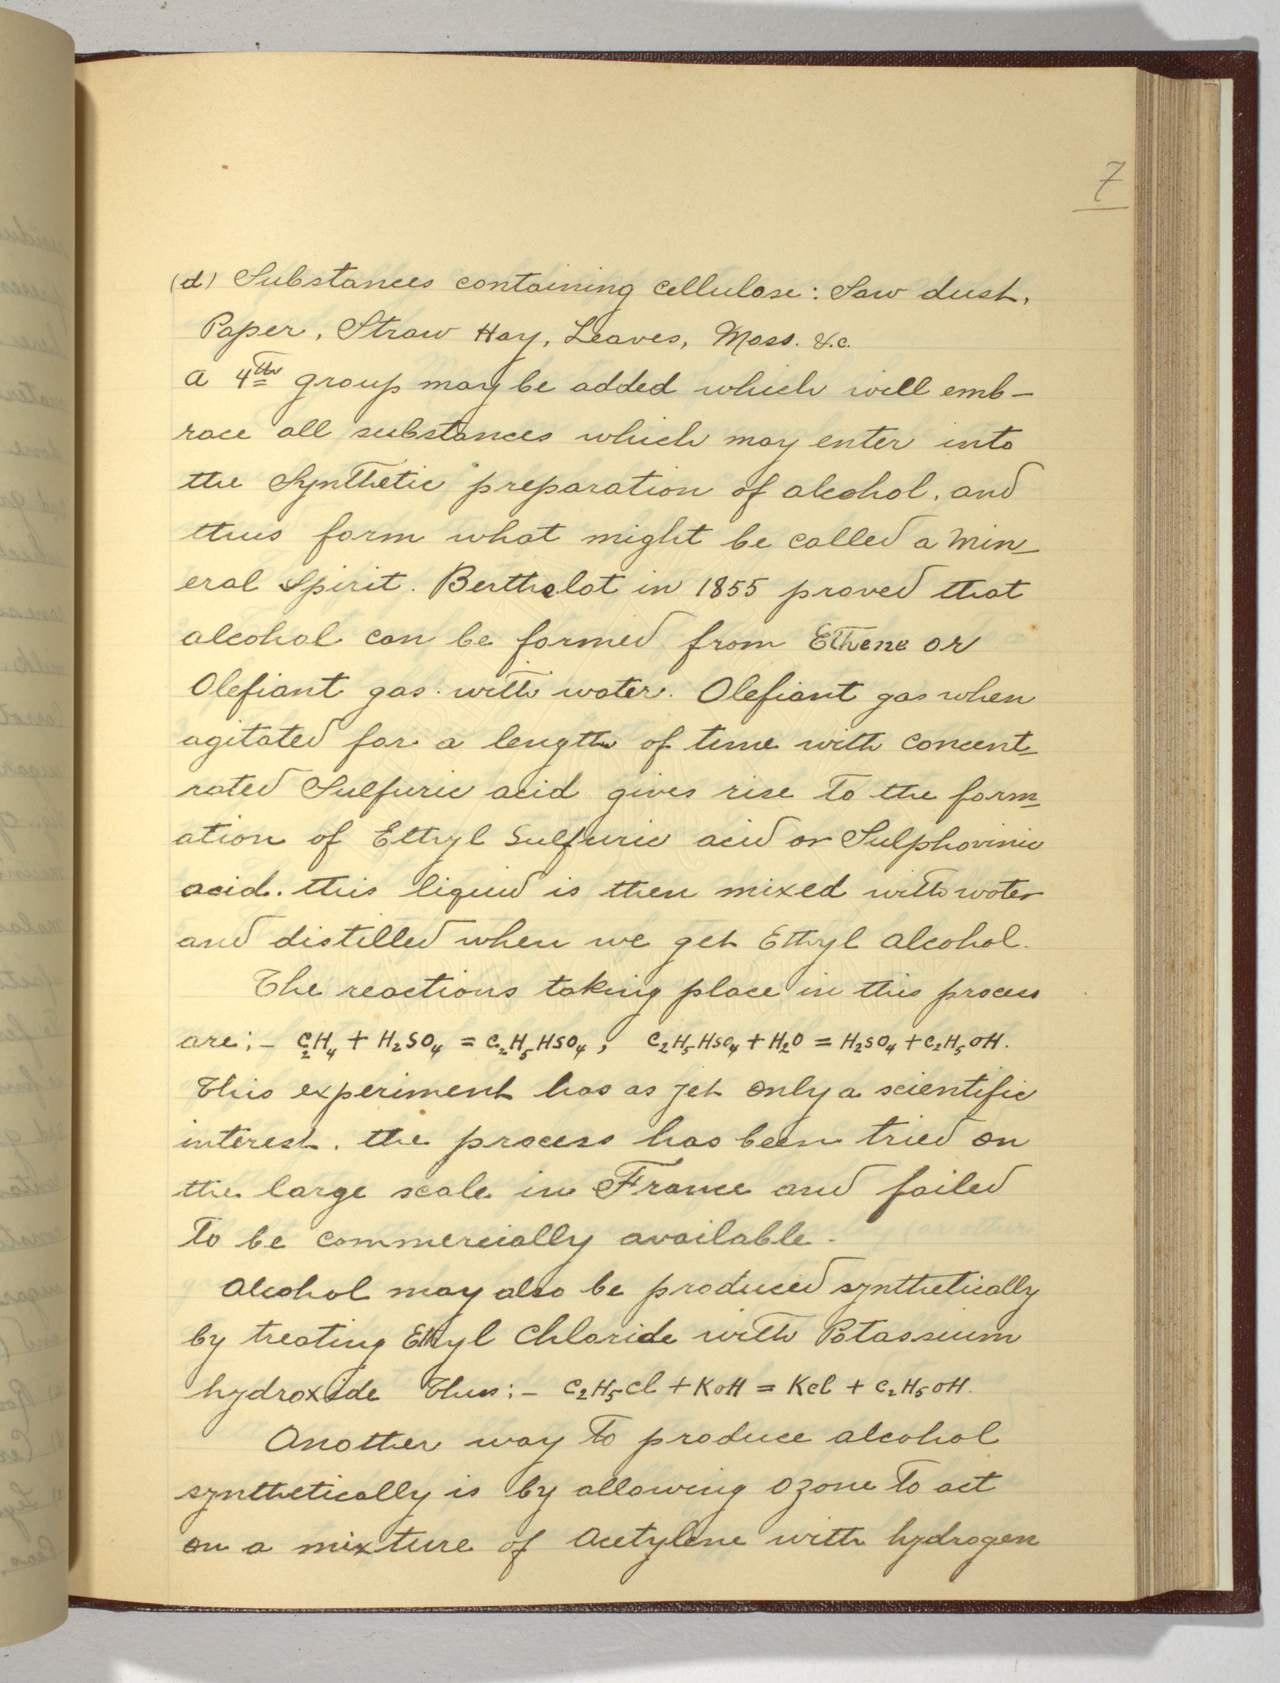 7
(d) Substances containing cellulose: Saw dust,
Paper, Straw Hay, Leaves, Moss. &c.
A 4th group may be added which will emb-
race all substances which may enter into
the Synthetic preparation of alcohol, and
thus form what might be called a Min-
eral Spirit. Berthelot in 1855 proved that
alcohol can be formed from Ethene or
Olefiant gas with water. Olefiant gas when
agitated for a length of time with concent-
rated Sulfuric acid gives rise to the form-
ation of Ethyl Sulfuric acid or Sulphovinic
acid. this liquid is then mixed with water
and distilled when we get Ethyl alcohol.
The reactions taking place in this process
are:- C₂H₄ + H₂SO₄ = C₂H₅HSO₄, C₂H₅HSO₄ + H₂O = H₂SO₄ + C₂H₅OH.
This experiment has as yet only a scientific
interest. the process has been tried on
the large scale in France and failed
to be commercially available.
Alcohol may also be produced synthetically
by treating Ethyl Chloride with Potassium
hydroxide Thus:- C₂H₅Cl + KOH = KCl + C₂H₅OH.
Another way to produce alcohol
synthetically is by allowing Ozone to act
on a mixture of Acetylene with hydrogen